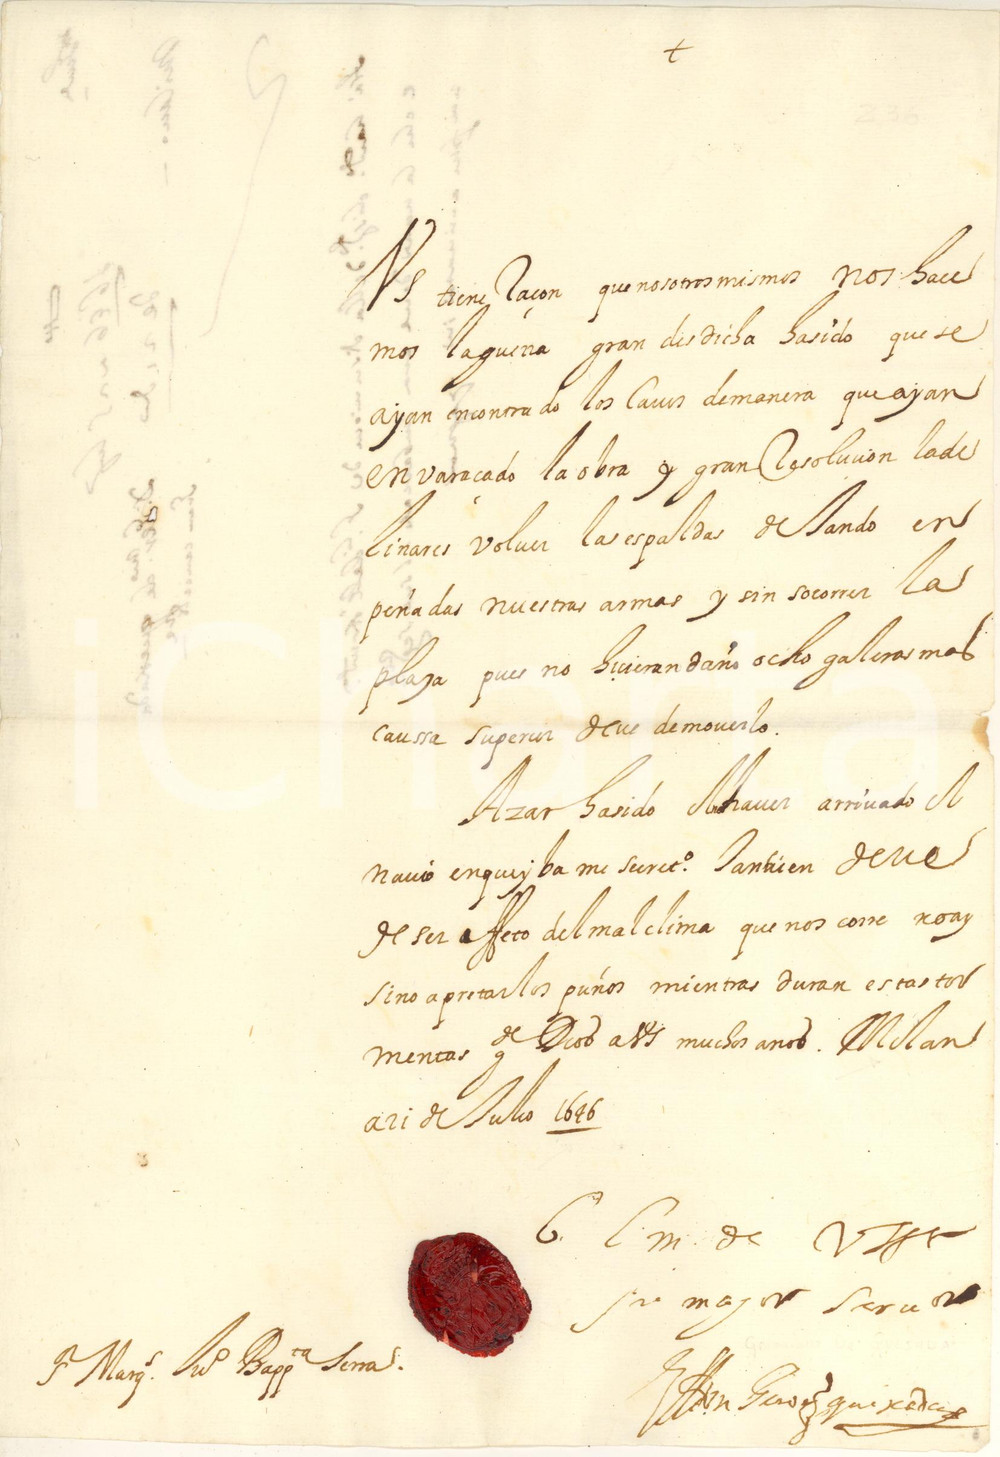 +
VS tiene Raçon que nosotros mismos nos hace
mos la guerra gran desdicha ha sido que se
ayan encontrado los Cavos de manera que ayan
envaraçado la obra y gran Resolucion la de
linares volver las espaldas dejando en
peñadas nuestras armas y sin socorrer la
plaza pues no hicieran daño ocho galeras mas
caussa superior deve de moverlo.
Azar ha sido el haver arrivado el
navio en que yba mi secret.º tanbien deve
de ser effeto del mal clima que nos corre no ay
sino apretar los puños mientras duran estas tor
mentas g.de Dios a VS muchos anos. Milan
a 21 de Jullio 1646
B. l. m. de V SS.ª
su mayor servidor
S.r Marq.s Ju.º Bapp.ta Serra.